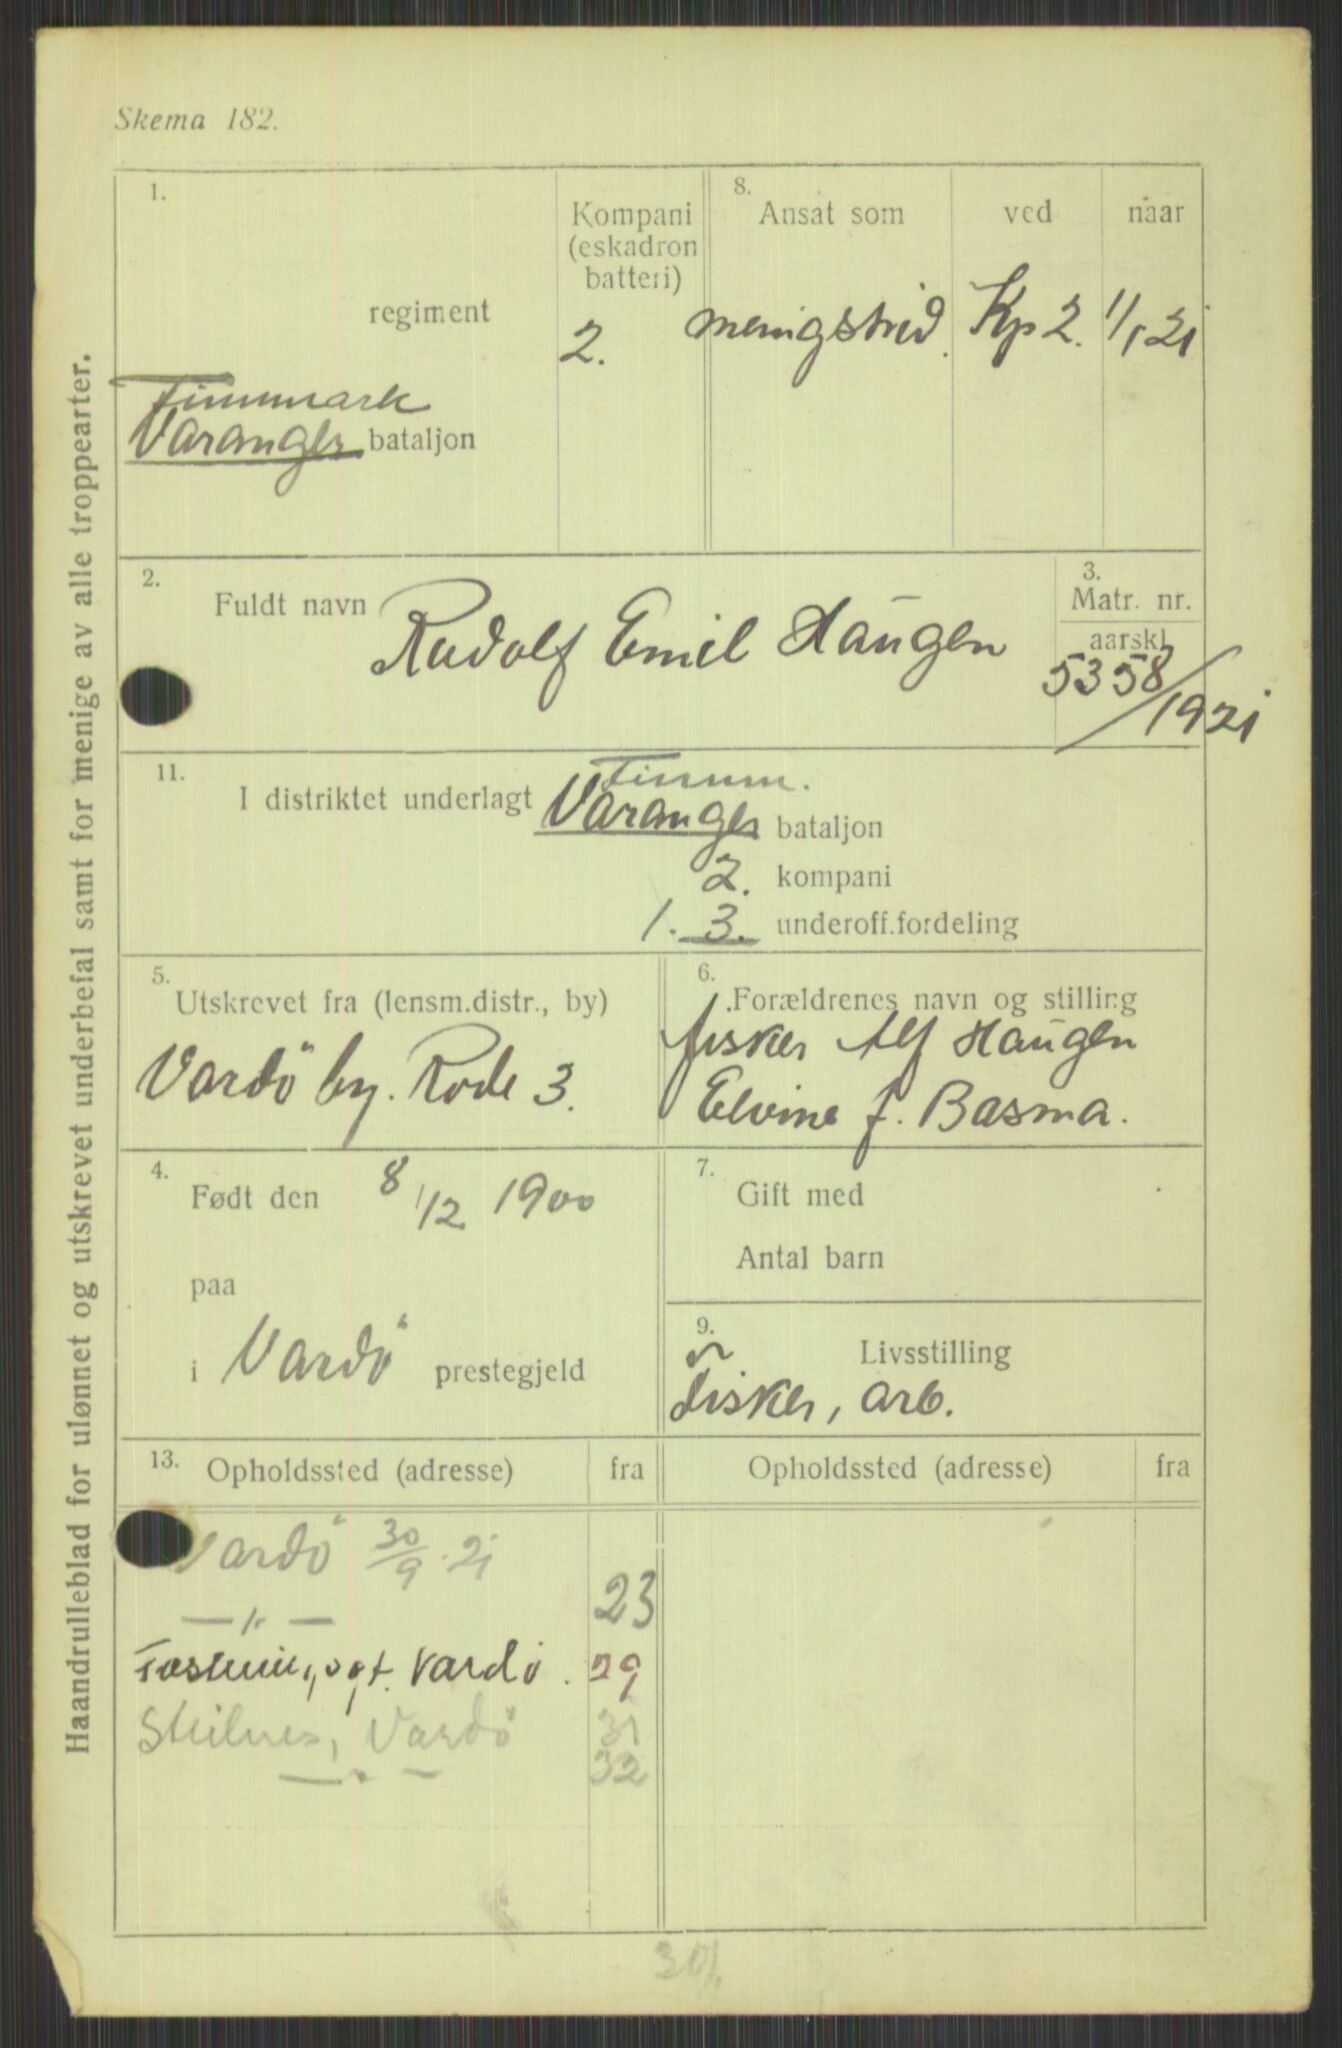 Skema 182.
Haandrulleblad for ulønnet og utskrevet underbefal samt for menige av alle troppearter.
1.
regiment
Finnmark
Varanger bataljon
Kompani
(eskadron
batteri)
2.
8.
Ansat som
ved
naar
menigstrid.
Kp 2.
1/1 21
2.
Fuldt navn Rudolf Emil Haugen
3.
Matr. nr.
aarskl.
5358/1921
11.
Finnm.
I distriktet underlagt Varanger bataljon
2. kompani
1. 3. underoff.fordeling
5.
Utskrevet fra (lensm.distr., by)
Vardö by. Rode 3.
6.
Forældrenes navn og stilling
fisker Alf Haugen
Elvine f. Basma.
4.
Født den 8/12 1900
paa
i Vardö prestegjeld
7.
Gift med
Antal barn
9.
Livsstilling
Fisker, arb.
13.
Opholdssted (adresse)
fra
Opholdssted (adresse)
fra
Vardö 30/9.21
— " — 23
pgt. Vardö. 29
Steilnes, Vardö 31
— " — 32